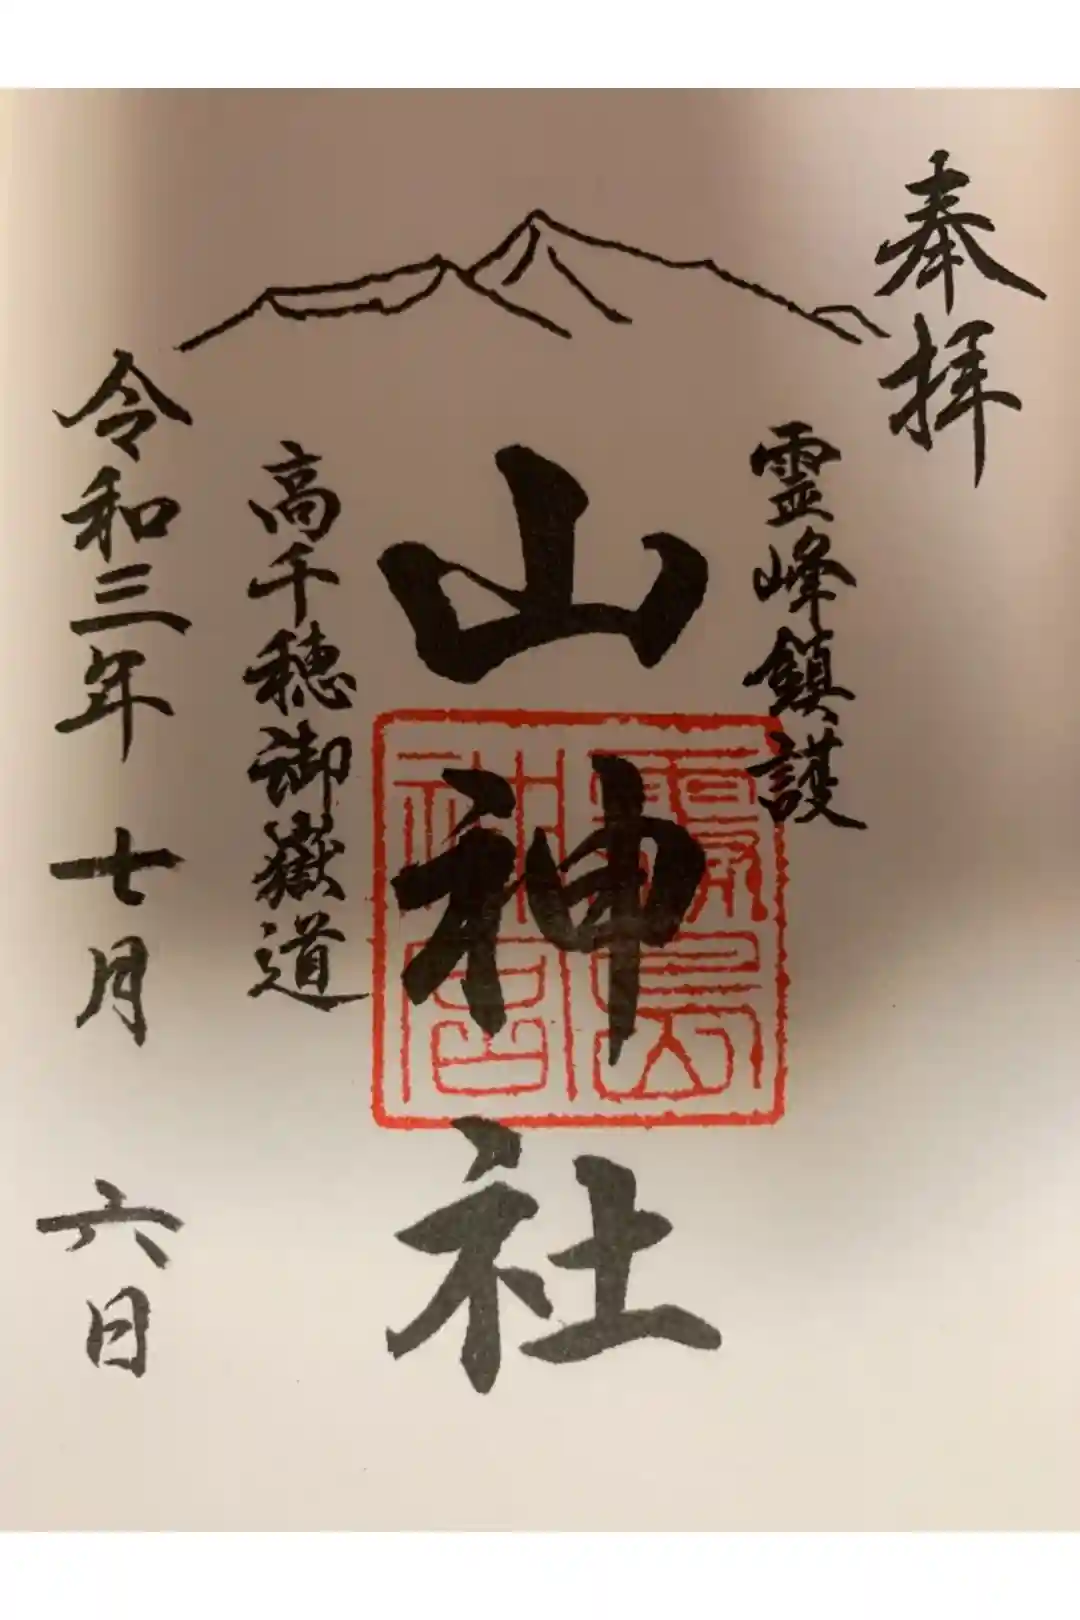 奉拝
霊峰鎮護
山神社
高千穂御嶽道
令和三年 七月 六日
霧島
神宮